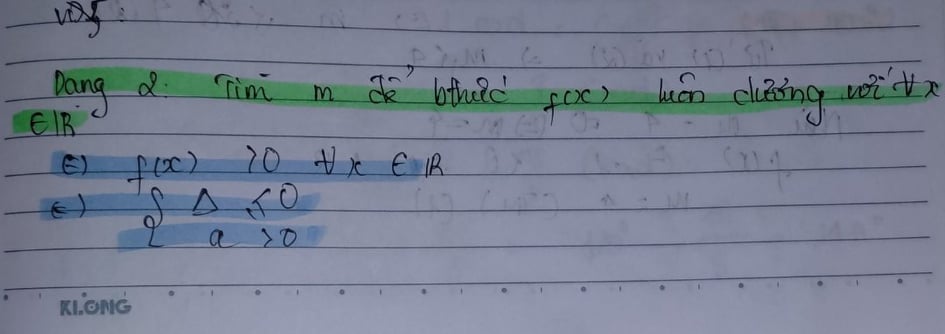 Dạng 2: Tìm m để bthức f(x) luôn dương với ∀ x
∈ ℝ
⇔ f(x) > 0 ∀ x ∈ ℝ
⇔ { Δ < 0
a > 0
KLONG